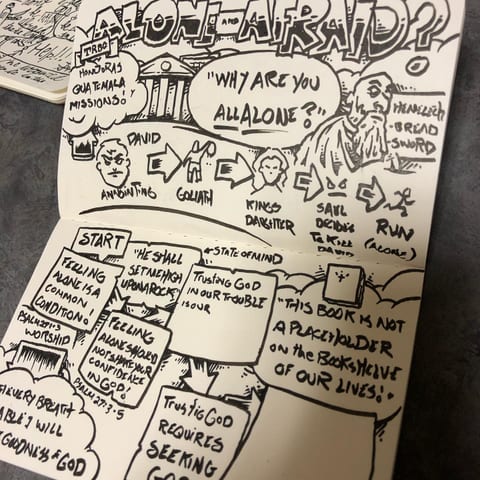 ALONE AND AFRAID?
TRBO
HONDURAS
GUATEMALA
MISSIONS!
"WHY ARE YOU
ALL ALONE?"
BREAD
SWORD
DAVID
ANNOINTING
GOLIATH
KINGS
DAUGHTER
SAUL
DECIDES
To KILL
DAVID
RUN
(ALONE)
START
FEELING
ALONE IS A
COMMON
CONDITION!
"HE SHALL
SET ME HIGH
UPON A ROCK"
STATE OF MIND
TRUSTING GOD
IN OUR TROUBLE
IS OUR
FEELING
ALONE SHOULD
NOT SHAKE YOUR
CONFIDENCE
IN GOD!
PSALM 27:3-5
WORSHIP
EVERY BREATH
ABLE I WILL
GOODNESS of GOD
TrusTiG GOD
REQUIRES
SEEKING
GOD
"THIS BOOK IS NOT
A PLACEHOLDER
ON the BOOKSHELVE
OF OUR LIVES!"